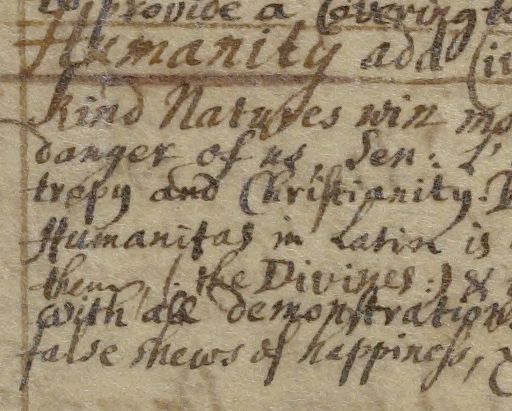 provide a Covering to
Humanity add Ci
kind Natures win mo
danger of us. Sen: 
tropy and Christianity.
Humanitas in Latin is
them, (: the Divines:) &
with all demonstrations
false shews of happiness,